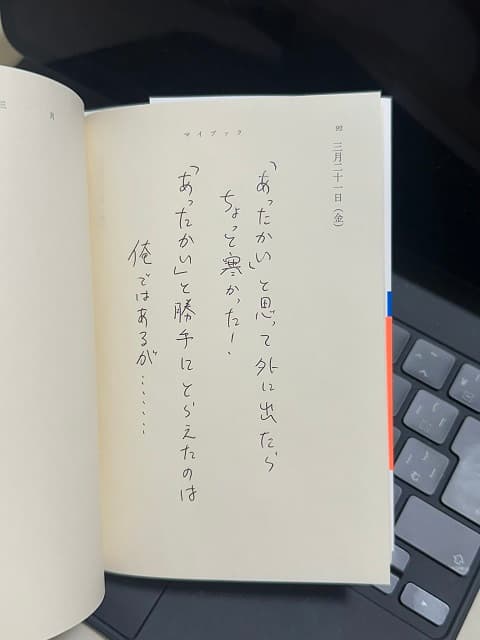 三月
マイブック
92 三月二十一日(金)
「あったかい」と思って外に出たら
ちょっと寒かった!
「あったかい」と勝手にとらえたのは
俺ではあるが……